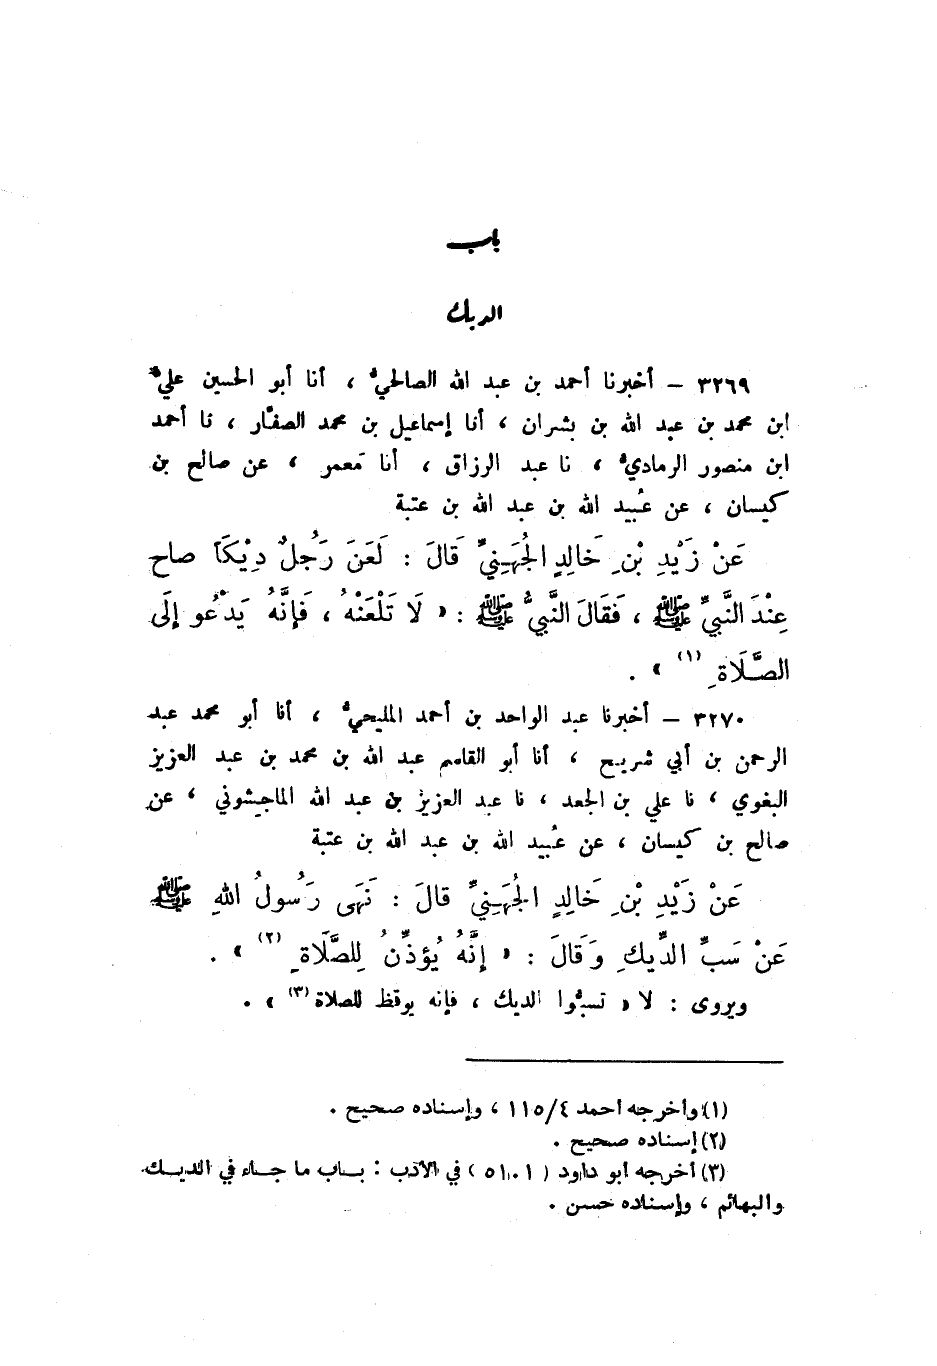 باب
الديك
٣٢٦٩ – أخبرنا أحمد بن عبد الله الصالحيُّ ، أنا أبو الحسين عليُّ
ابن محمد بن عبد الله بن بشران ، أنا إسماعيل بن محمد الصفَّار ، نا أحمد
ابن منصور الرماديُّ ، نا عبد الرزاق ، أنا مَعمر ، عن صالح بن
كيسان ، عن عُبيد الله بن عبد الله بن عتبة
عَنْ زَيْدِ بْنِ خَالِدٍ الْجُهَنِيِّ قَالَ : لَعَنَ رَجُلٌ دِيْكَاً صاح
عِنْدَ النَّبِيِّ ﷺ ، فَقَالَ النَّبِيُّ ﷺ : « لَا تَلْعَنْهُ ، فَإِنَّهُ يَدْعُو إِلَى
الصَّلَاةِ (١) » .
٣٢٧٠ – أخبرنا عبد الواحد بن أحمد المليحيُّ ، أنا أبو محمد عبد
الرحمن بن أبي شريح ، أنا أبو القاسم عبد الله بن محمد بن عبد العزيز
البغوي ، نا علي بن الجعد ، نا عبد العزيز بن عبد الله الماجِشوني ، عن
صالح بن كيسان ، عن عُبيد الله بن عبد الله بن عتبة
عَنْ زَيْدِ بْنِ خَالِدٍ الْجُهَنِيِّ قَالَ : نَهَى رَسُولُ اللهِ ﷺ
عَنْ سَبِّ الدِّيكِ وَقَالَ : « إِنَّهُ يُؤَذِّنُ لِلصَّلَاةِ (٢) » .
ويروى : لا « تسبُّوا الديك ، فإنه يوقظ للصلاة (٣) » .
(١) وأخرجه أحمد ١١٥/٤ ، وإسناده صحيح .
(٢) إسناده صحيح .
(٣) أخرجه أبو داود ( ٥١٠١ ) في الأدب : باب ما جاء في الديك
والبهائم ، وإسناده حسن .